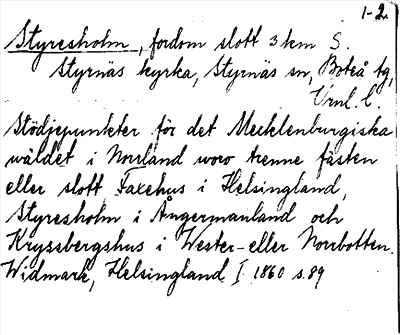 1-2.
Styresholm, fordom slott 3 km S.
Styrnäs kyrka, Styrnäs sn, Boteå tg,
Vrnl. l.
Stödjepunkter för det Mecklenburgiska
wäldet i Norrland woro trenne fästen
eller slott Faxehus i Helsingland,
Styresholm i Ångermanland och
Kryssbergshus i Wester- eller Norrbotten.
Widmark, Helsingland I 1860 s. 89